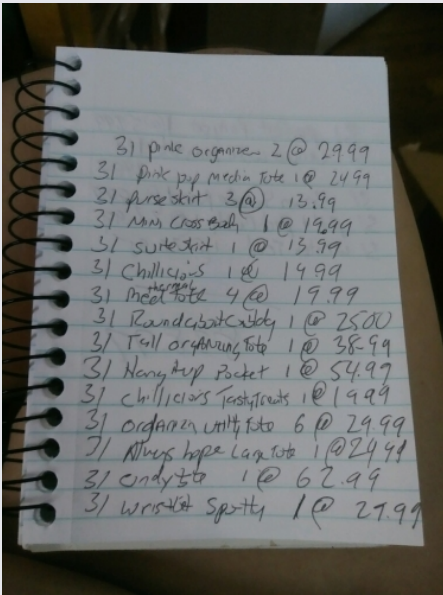 31 pink organizer 2 @ 29.99
31 pink pop media Tote 1 @ 24.99
31 purse skirt 3 @ 13.99
31 Mini Cross Body 1 @ 19.99
31 suite skirt 1 @ 13.99
31 Chillicious 1 @ 14.99
31 thermal Tote 4 @ 19.99
31 Roundabout Caddy 1 @ 25.00
31 Tall organizing Tote 1 @ 38.99
31 Hang it up Pocket 1 @ 54.99
31 Chillicious TastyTreats 1 @ 19.99
31 organizn utility Tote 6 @ 29.99
31 Always hope Large Tote 1 @ 24.99
31 1 @ 62.99
31 wristlet Spotty 1 @ 27.99